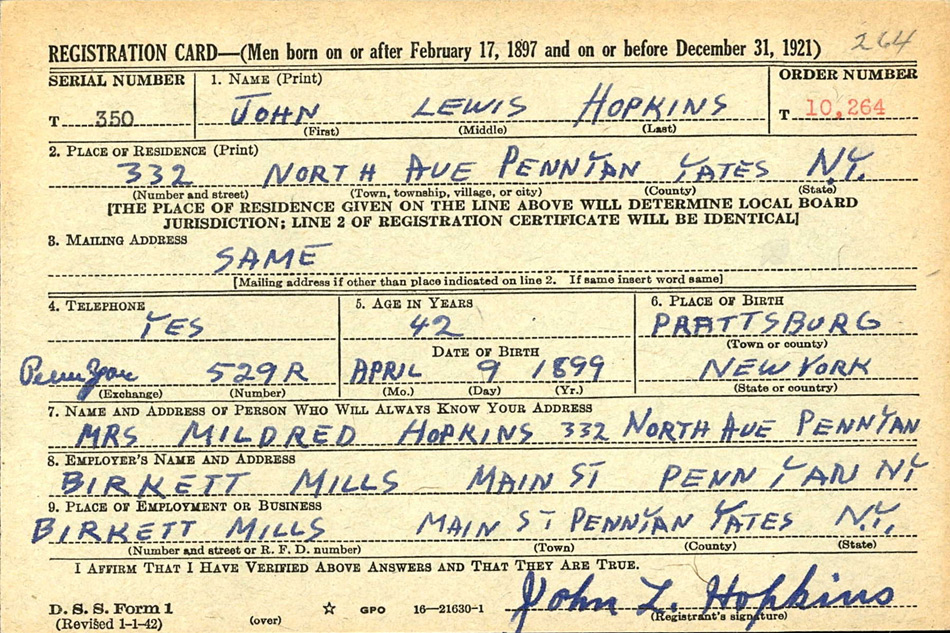 264
REGISTRATION CARD—(Men born on or after February 17, 1897 and on or before December 31, 1921)
SERIAL NUMBER
T 350
1. NAME (Print)
JOHN LEWIS HOPKINS
(First) (Middle) (Last)
ORDER NUMBER
T 10,264
2. PLACE OF RESIDENCE (Print)
332 NORTH AVE PENNYAN YATES N.Y.
(Number and street) (Town, township, village, or city) (County) (State)
[THE PLACE OF RESIDENCE GIVEN ON THE LINE ABOVE WILL DETERMINE LOCAL BOARD
JURISDICTION; LINE 2 OF REGISTRATION CERTIFICATE WILL BE IDENTICAL]
3. MAILING ADDRESS
SAME
[Mailing address if other than place indicated on line 2. If same insert word same]
4. TELEPHONE
YES
Penn Yan 529R
(Exchange) (Number)
5. AGE IN YEARS
42
DATE OF BIRTH
APRIL 9 1899
(Mo.) (Day) (Yr.)
6. PLACE OF BIRTH
PRATTSBURG
(Town or county)
NEW YORK
(State or country)
7. NAME AND ADDRESS OF PERSON WHO WILL ALWAYS KNOW YOUR ADDRESS
MRS MILDRED HOPKINS 332 NORTH AVE PENNYAN
8. EMPLOYER'S NAME AND ADDRESS
BIRKETT MILLS MAIN ST PENN YAN NY
9. PLACE OF EMPLOYMENT OR BUSINESS
BIRKETT MILLS MAIN ST PENNYAN YATES N.Y.
(Number and street or R. F. D. number) (Town) (County) (State)
I AFFIRM THAT I HAVE VERIFIED ABOVE ANSWERS AND THAT THEY ARE TRUE.
John L. Hopkins
(Registrant's signature)
D. S. S. Form 1
(Revised 1-1-42) (over) ☆ GPO 16—21630-1